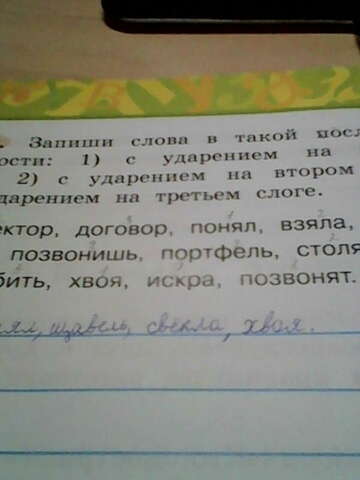 Запиши слова в такой
ости: 1) с ударением на
2) с ударением на втором
дарением на третьем слоге.
ектор, договор, понял, взяла,
позвонишь, портфель, столя
бить, хвоя, искра, позвонят.
щавель, свекла, хвоя.